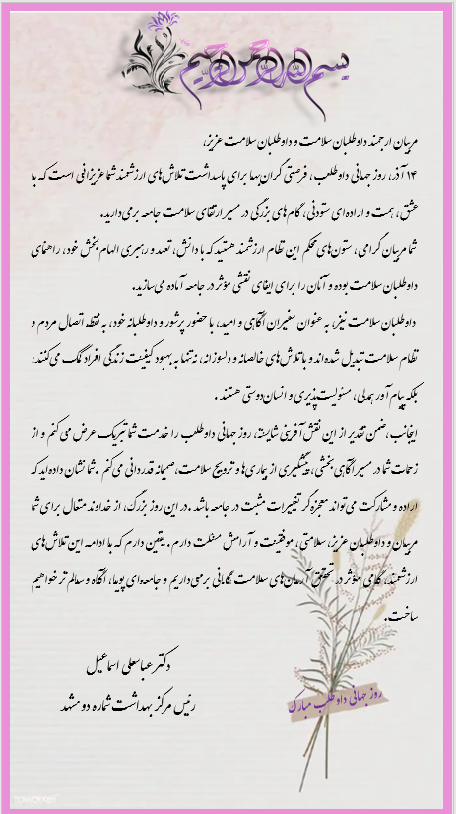 بسم الله الرحمن الرحیم
مربیان ارجمند داوطلبان سلامت و داوطلبان سلامت عزیز،
۱۴ آذر، روز جهانی داوطلب، فرصتی گران‌بها برای پاسداشت تلاش‌های ارزشمند شما عزیزانی است که با
عشق، همت و اراده‌ای ستودنی، گام‌های بزرگی در مسیر ارتقای سلامت جامعه برمی‌دارید.
شما مربیان گرامی، ستون‌های محکم این نظام ارزشمند هستید که با دانش، تعهد و رهبری الهام‌بخش خود، راهنمای
داوطلبان سلامت بوده و آنان را برای ایفای نقشی مؤثر در جامعه آماده می‌سازید.
داوطلبان سلامت نیز، به عنوان سفیران آگاهی و امید، با حضور پرشور و داوطلبانه خود، به نقطه اتصال مردم و
نظام سلامت تبدیل شده‌اند و با تلاش‌های خالصانه و دلسوزانه، نه‌تنها به بهبود کیفیت زندگی افراد کمک می‌کنند،
بلکه پیام‌آور همدلی، مسئولیت‌پذیری و انسان‌دوستی هستند .
اینجانب ،ضمن تقدیر از این نقش‌آفرینی شایسته، روز جهانی داوطلب را خدمت شما تبریک عرض می‌کنم و از
زحمات شما در مسیر آگاهی‌بخشی، پیشگیری از بیماری‌ها و ترویج سلامت،صمیمانه قدردانی می‌کنم .شما نشان داده‌اید که
اراده و مشارکت می‌تواند معجزه‌گر تغییرات مثبت در جامعه باشد .در این روز بزرگ، از خداوند متعال برای شما
مربیان و داوطلبان عزیز، سلامتی، موفقیت و آرامش مسئلت دارم .یقین دارم که با ادامه این تلاش‌های
ارزشمند، گامی مؤثر در تحقق آرمان‌های سلامت همگانی برمی‌داریم و جامعه‌ای پویا، آگاه و سالم‌تر خواهیم
ساخت.
دکتر عباسعلی اسماعیل
رئیس مرکز بهداشت شماره دو مشهد
روز جهانی داوطلب مبارک